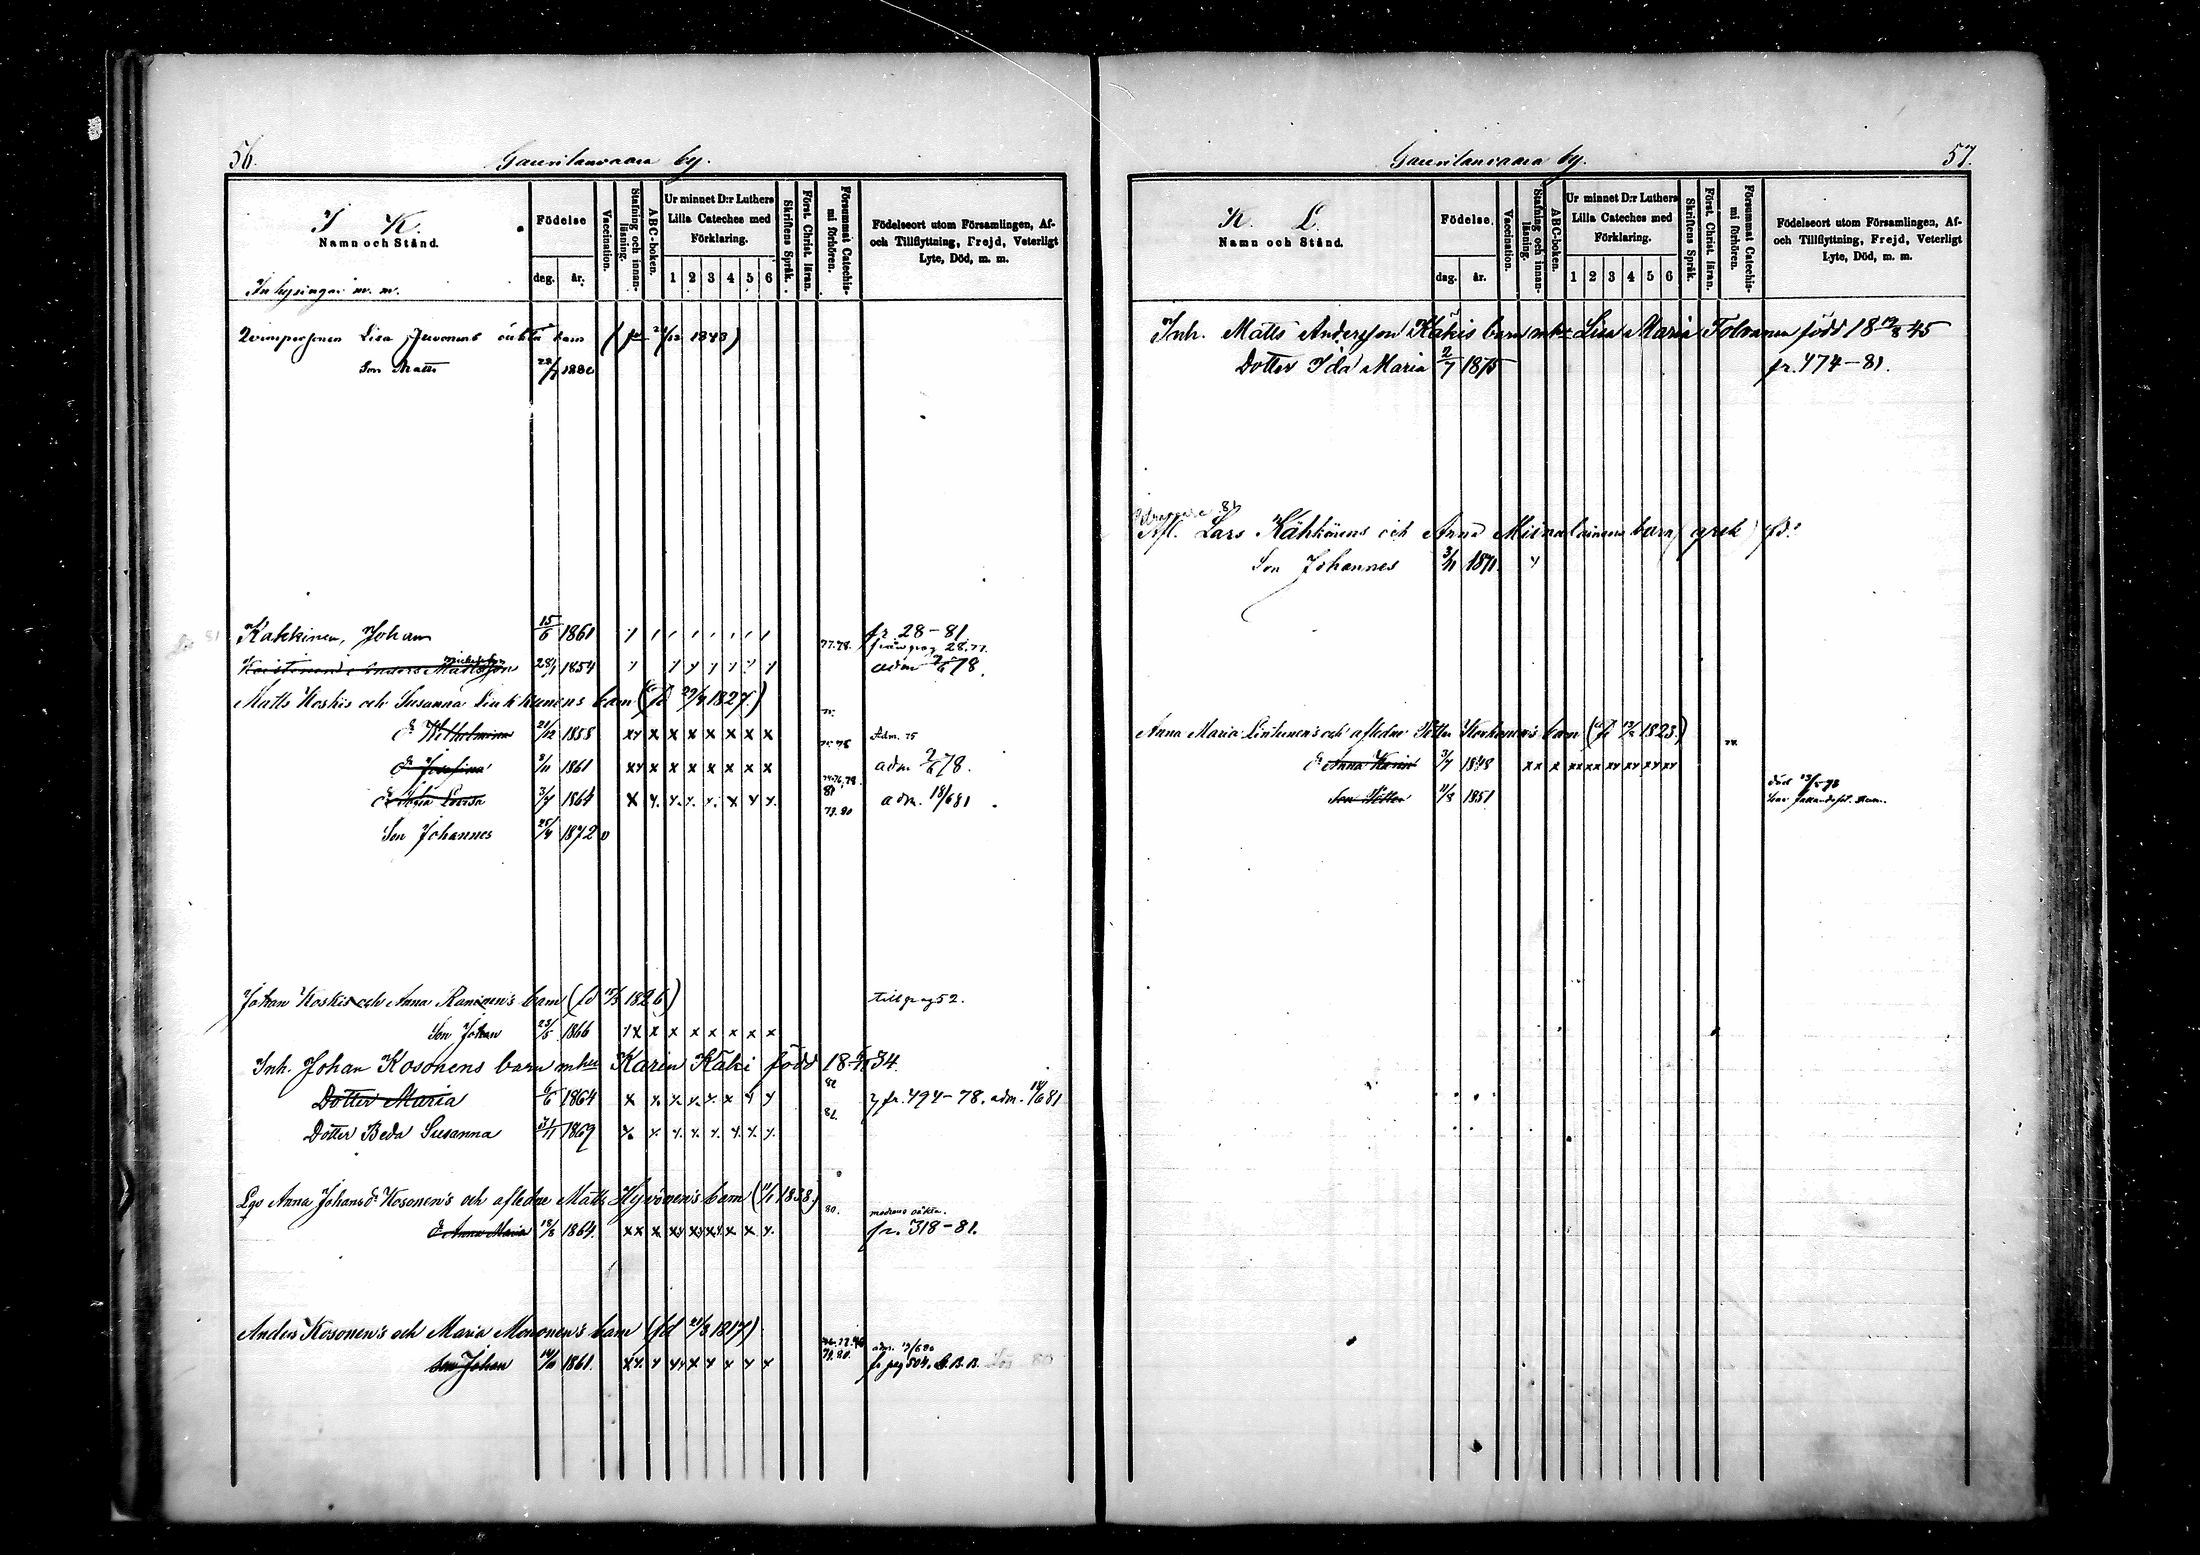 56.
Gauritanvaara by.
I K.
Namn och Stånd.
Födelse
dag.
år.
Vaccination.
Stafning och innan-läsning.
ABC-boken.
Ur minnet D:r Luthers Lilla Cateches med Förklaring.
1 2 3 4 5 6
Skriftens Språk.
Först. Christ. läran.
Försummat Catechis-mi förhören.
Födelseort utom Församlingen, Af- och Tillflyttning, Frejd, Veterligt Lyte, Död, m. m.
Inhysingar m. m.
Qvinspersonen Lisa Juvonens oäkta barn (fd 21/12 1843)
Son Matts 1880
Kakkinen, Johan 15/6 1861 fr. 28-81
Anders Mattsson 28/1 1854 77.78. från pag 28.77. adm 78.
Matts Koskis och Susanna Linkkunens barn (fd 29/4 1827)
d. Wilhelmina 21/12 1858 x x x x x x x x Adm. 75
dr Josefina 8/11 1861 x x x x x x x x 75.76 adm 2/6 78.
dr Louisa 3/7 1864 81 adm. 18/6 81
79.80
Son Johannes 25/4 1872 v
Johan Koskis och Anna Raninen's barn (fd 15/3 1826) till pag 52.
Son Johan 23/5 1866 x x x x x x x x
Inh. Johan Kosonens barn mhu Karin Käki född 18 34.
Dotter Maria 6/6 1864 82 fr. 494-78. adm. 18/6 81
Dotter Beda Susanna 7/11 1869 81.
Lqv Anna Johansdr Kosonen's och aflidne Matts Hyvönen's barn (11/1 1838)
d. Anna Maria 18/6 1864. 80. modrens oäkta. fr. 318-81.
Anders Kosonen's och Maria Mononen's barn (fd 21/3 1817)
Son Johan 14/11 1861. 79.80. adm. 13/6 80 fr pag 504. C. B. B.
57.
Gauritanvaara by.
K. L.
Namn och Stånd.
Födelse.
dag.
år.
Vaccination.
Stafning och innan-läsning.
ABC-boken.
Ur minnet D:r Luthers Lilla Cateches med Förklaring.
1 2 3 4 5 6
Skriftens Språk.
Först. Christ. läran.
Försummat Catechis-mi förhören.
Födelseort utom Församlingen, Af- och Tillflyttning, Frejd, Veterligt Lyte, Död, m. m.
Inh. Matts Andersson Käkis barn mhu Lisa Maria Tolvanen född 18 19/8 45
Dotter Ida Maria 2/7 1875 fr. 474-81.
Afl. Lars Kähkönens och Anna barn (grek)
Son Johannes 3/11 1871.
Anna Maria Lintunen's och aflidne Petter Korhonen's barn (fd 12/2 1823)
dr Anna Karin 3/4 1848
Son Petter 11/3 1851 död 13/5 78